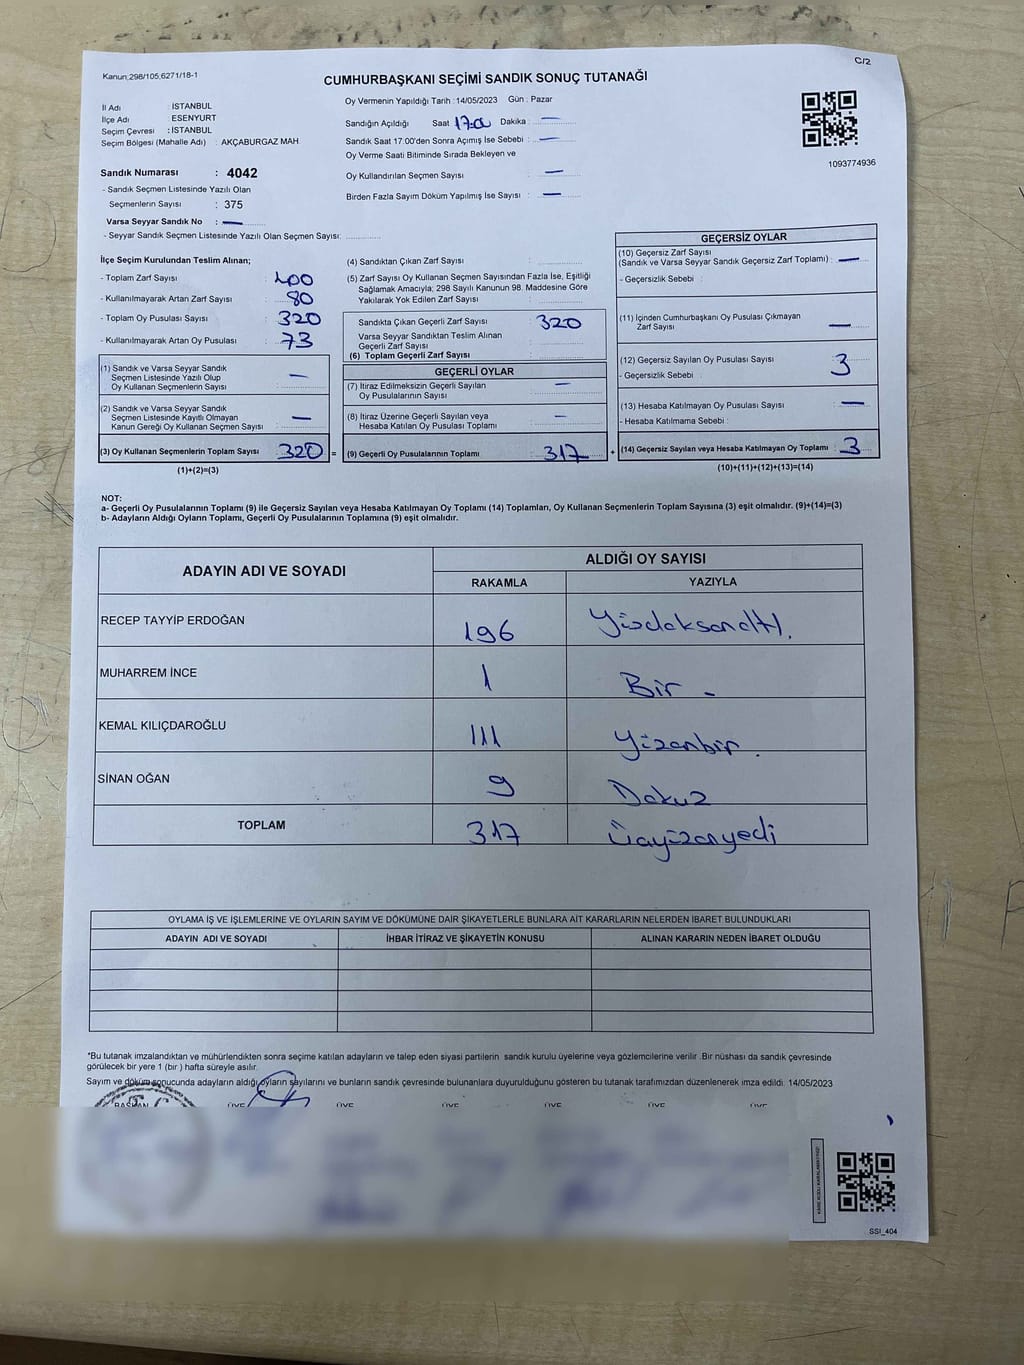 Kanun;298/105;6271/18-1
C/2
CUMHURBAŞKANI SEÇİMİ SANDIK SONUÇ TUTANAĞI
İl Adı : İSTANBUL
İlçe Adı : ESENYURT
Seçim Çevresi : İSTANBUL
Seçim Bölgesi (Mahalle Adı) : AKÇABURGAZ MAH
Oy Vermenin Yapıldığı Tarih : 14/05/2023 Gün : Pazar
Sandığın Açıldığı Saat 17:00 Dakika : —
Sandık Saat 17:00'den Sonra Açımış İse Sebebi : —
Oy Verme Saati Bitiminde Sırada Bekleyen ve
Oy Kullandırılan Seçmen Sayısı : —
Birden Fazla Sayım Döküm Yapılmış İse Sayısı : —
1093774936
Sandık Numarası : 4042
- Sandık Seçmen Listesinde Yazılı Olan
Seçmenlerin Sayısı : 375
Varsa Seyyar Sandık No : —
- Seyyar Sandık Seçmen Listesinde Yazılı Olan Seçmen Sayısı:
İlçe Seçim Kurulundan Teslim Alınan;
- Toplam Zarf Sayısı : 400
- Kullanılmayarak Artan Zarf Sayısı : 80
- Toplam Oy Pusulası Sayısı : 320
- Kullanılmayarak Artan Oy Pusulası : 73
(1) Sandık ve Varsa Seyyar Sandık
Seçmen Listesinde Yazılı Olup
Oy Kullanan Seçmenlerin Sayısı : —
(2) Sandık ve Varsa Seyyar Sandık
Seçmen Listesinde Kayıtlı Olmayan
Kanun Gereği Oy Kullanan Seçmen Sayısı : —
(3) Oy Kullanan Seçmenlerin Toplam Sayısı : 320 =
(1)+(2)=(3)
(4) Sandıktan Çıkan Zarf Sayısı :
(5) Zarf Sayısı Oy Kullanan Seçmen Sayısından Fazla İse, Eşitliği
Sağlamak Amacıyla; 298 Sayılı Kanunun 98. Maddesine Göre
Yakılarak Yok Edilen Zarf Sayısı :
Sandıkta Çıkan Geçerli Zarf Sayısı : 320
Varsa Seyyar Sandıktan Teslim Alınan
Geçerli Zarf Sayısı :
(6) Toplam Geçerli Zarf Sayısı :
GEÇERLİ OYLAR
(7) İtiraz Edilmeksizin Geçerli Sayılan
Oy Pusulalarının Sayısı : —
(8) İtiraz Üzerine Geçerli Sayılan veya
Hesaba Katılan Oy Pusulası Toplamı : —
(9) Geçerli Oy Pusulalarının Toplamı : 317 +
GEÇERSİZ OYLAR
(10) Geçersiz Zarf Sayısı
(Sandık ve Varsa Seyyar Sandık Geçersiz Zarf Toplamı) : —
- Geçersizlik Sebebi :
(11) İçinden Cumhurbaşkanı Oy Pusulası Çıkmayan
Zarf Sayısı : —
(12) Geçersiz Sayılan Oy Pusulası Sayısı : 3
- Geçersizlik Sebebi :
(13) Hesaba Katılmayan Oy Pusulası Sayısı : —
- Hesaba Katılmama Sebebi :
(14) Geçersiz Sayılan veya Hesaba Katılmayan Oy Toplamı : 3
(10)+(11)+(12)+(13)=(14)
NOT:
a- Geçerli Oy Pusulalarının Toplamı (9) ile Geçersiz Sayılan veya Hesaba Katılmayan Oy Toplamı (14) Toplamları, Oy Kullanan Seçmenlerin Toplam Sayısına (3) eşit olmalıdır. (9)+(14)=(3)
b- Adayların Aldığı Oyların Toplamı, Geçerli Oy Pusulalarının Toplamına (9) eşit olmalıdır.
ADAYIN ADI VE SOYADI
ALDIĞI OY SAYISI
RAKAMLA YAZIYLA
RECEP TAYYİP ERDOĞAN 196 Yüzdoksanaltı.
MUHARREM İNCE 1 Bir -
KEMAL KILIÇDAROĞLU 111 Yüzonbir.
SİNAN OĞAN 9 Dokuz
TOPLAM 317 Üçyüzonyedi
OYLAMA İŞ VE İŞLEMLERİNE VE OYLARIN SAYIM VE DÖKÜMÜNE DAİR ŞİKAYETLERLE BUNLARA AİT KARARLARIN NELERDEN İBARET BULUNDUKLARI
ADAYIN ADI VE SOYADI İHBAR İTİRAZ VE ŞİKAYETİN KONUSU ALINAN KARARIN NEDEN İBARET OLDUĞU
*Bu tutanak imzalandıktan ve mühürlendikten sonra seçime katılan adayların ve talep eden siyasi partilerin sandık kurulu üyelerine veya gözlemcilerine verilir .Bir nüshası da sandık çevresinde
görülecek bir yere 1 (bir ) hafta süreyle asılır.
Sayım ve döküm sonucunda adayların aldığı oyların sayılarını ve bunların sandık çevresinde bulunanlara duyurulduğunu gösteren bu tutanak tarafımızdan düzenlenerek imza edildi. 14/05/2023
BAŞKAN ÜYE ÜYE ÜYE ÜYE ÜYE ÜYE
KARE KODU KARALAMAYINIZ!
SSI_404